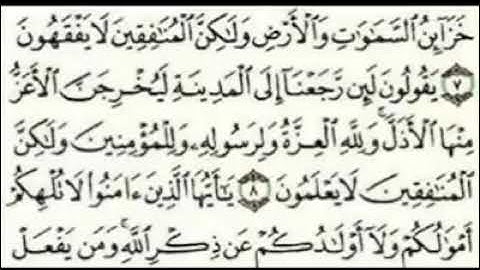 خَزَآئِنُ السَّمَٰوَٰتِ وَالْأَرْضِ وَلَٰكِنَّ الْمُنَٰفِقِينَ لَا يَفْقَهُونَ
٧ يَقُولُونَ لَئِن رَّجَعْنَآ إِلَى الْمَدِينَةِ لَيُخْرِجَنَّ الْأَعَزُّ
مِنْهَا الْأَذَلَّ ۚ وَلِلَّهِ الْعِزَّةُ وَلِرَسُولِهِۦ وَلِلْمُؤْمِنِينَ وَلَٰكِنَّ
الْمُنَٰفِقِينَ لَا يَعْلَمُونَ ٨ يَٰٓأَيُّهَا الَّذِينَ ءَامَنُوا۟ لَا تُلْهِكُمْ
أَمْوَٰلُكُمْ وَلَآ أَوْلَٰدُكُمْ عَن ذِكْرِ اللَّهِ ۚ وَمَن يَفْعَلْ